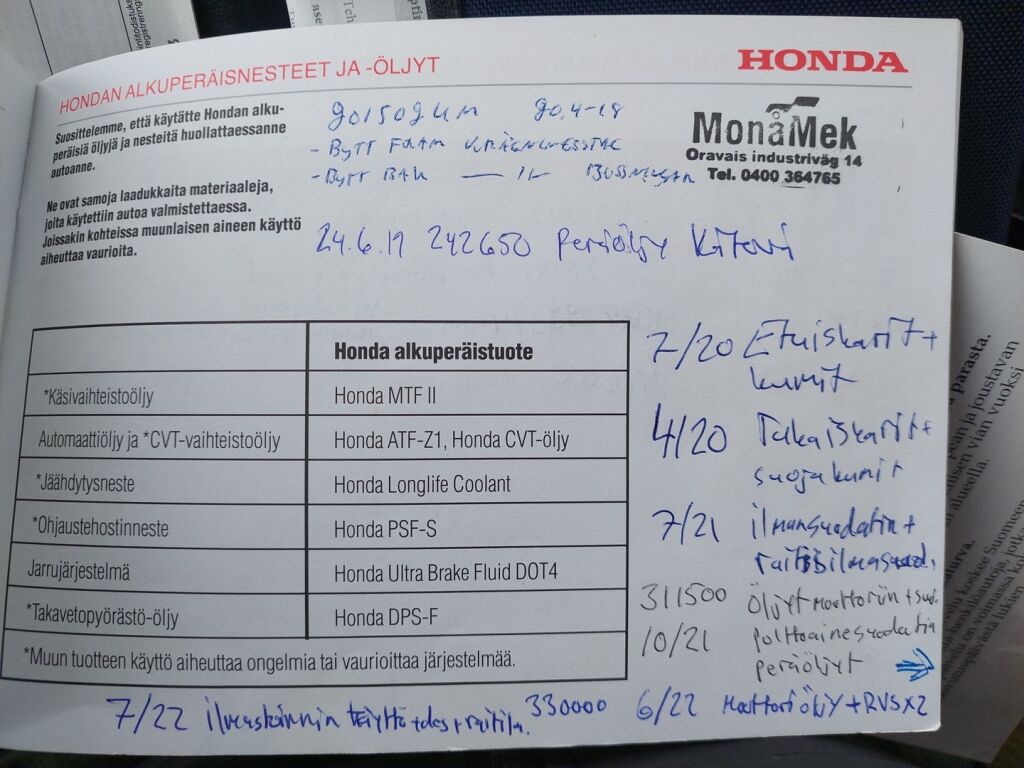 HONDAN ALKUPERÄISNESTEET JA -ÖLJYT
HONDA
Suosittelemme, että käytätte Hondan alku-
peräisiä öljyjä ja nesteitä huollattaessanne
autoanne.
Ne ovat samoja laadukkaita materiaaleja,
joita käytettiin autoa valmistettaessa.
Joissakin kohteissa muunlaisen aineen käyttö
aiheuttaa vaurioita.
20.4-18
- BYTT FRAM
- BYTT BAK — 11 —
MonåMek
Oravais industriväg 14
Tel. 0400 364765
24.6.19 242650 Peräöljy Kitovi
Honda alkuperäistuote
*Käsivaihteistoöljy Honda MTF II
Automaattiöljy ja *CVT-vaihteistoöljy Honda ATF-Z1, Honda CVT-öljy
*Jäähdytysneste Honda Longlife Coolant
*Ohjaustehostinneste Honda PSF-S
Jarrujärjestelmä Honda Ultra Brake Fluid DOT4
*Takavetopyörästö-öljy Honda DPS-F
*Muun tuotteen käyttö aiheuttaa ongelmia tai vaurioittaa järjestelmää.
7/20 Etuiskarit+
kumit
4/20 Takaiskarit+
suojakumit
7/21 ilmansuodatin +
raitisilmasuod.
311500 Öljyt moottoriin + suod.
10/21 polttoainesuodatin
peräöljyt
7/22 ilmastoinnin täyttö+des+raitila.
330000 6/22 Moottoriöljy+RVSx2
parasta.
ja joustavan
vian vuoksi
alueella.
koskee Suomeen